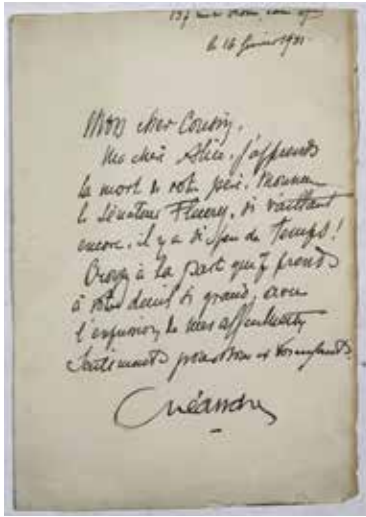 le 16 février 1931.
Mon cher Cousin,
Ma chère Alice, j'apprends
la mort de votre père, Monsieur
le Sénateur Fleury, si vaillant
encore, il y a si peu de temps!
Croyez à la part que je prends
à votre deuil si grand, avec
l'expression de mes affectueux
sentiments pour vous et vos enfants.
Léandre